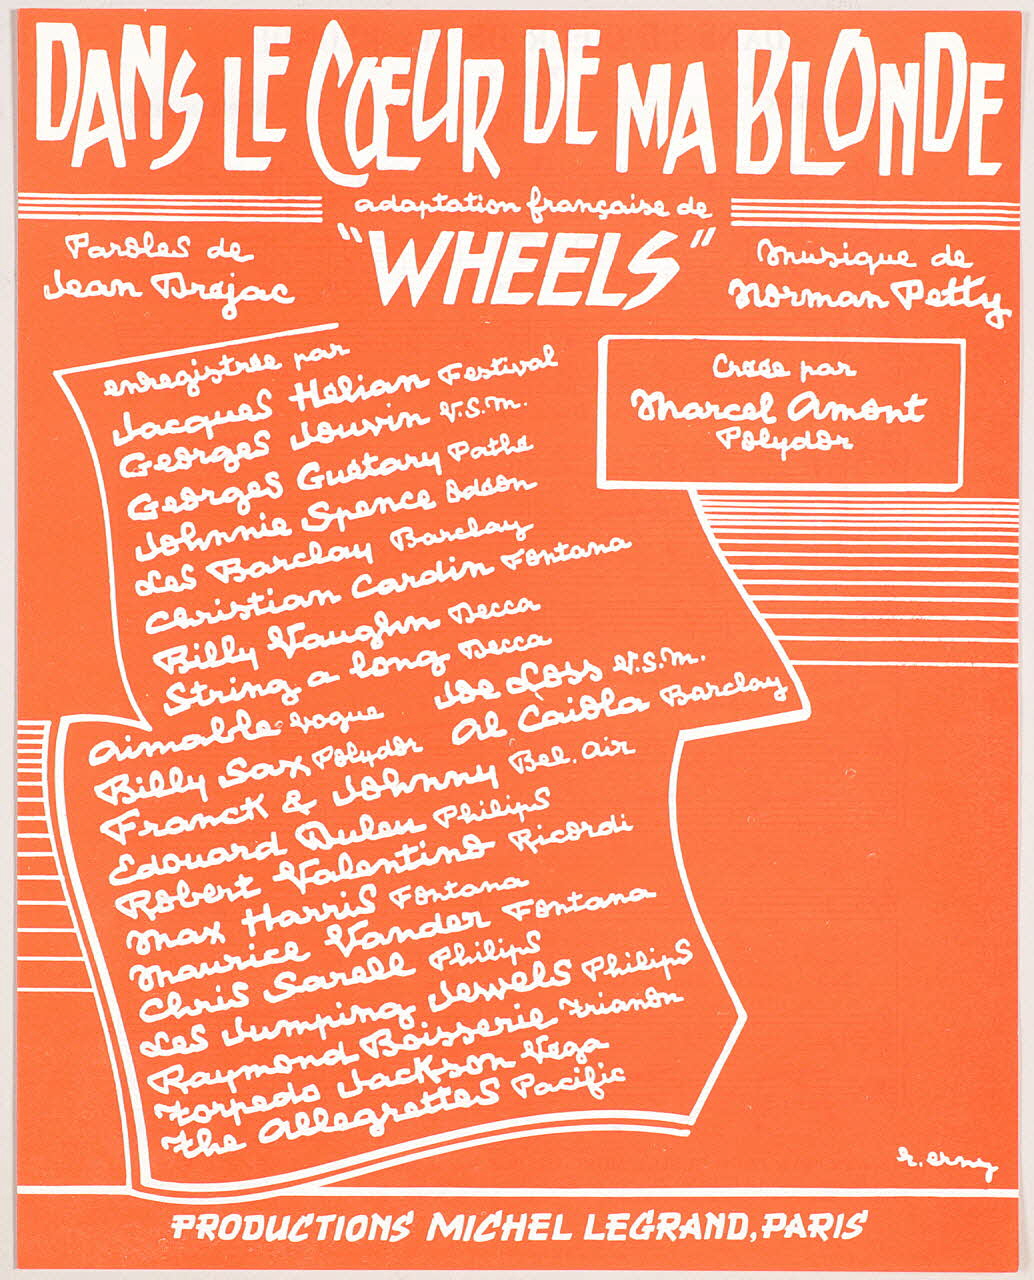 DANS LE CŒUR DE MA BLONDE
adaptation française de
"WHEELS"
Paroles de
Jean Dréjac
Musique de
Norman Petty
enregistrée par
Jacques Hélian Festival
Georges Jouvin V.S.M.
Georges Guétary Pathé
Johnnie Spence Odéon
Les Barclay Barclay
Christian Cardin Fontana
Billy Vaughn Decca
String a long Decca
Aimable Vogue
Joe Loss V.S.M.
Billy Sax Polydor
Al Caiola Barclay
Franck & Johnny Bel. Air
Edouard Duleu Philips
Robert Valentino Ricordi
Max Harris Fontana
Maurice Vander Fontana
Chris Sarell Philips
Les Jumping Jewels Philips
Raymond Boisserie Trianon
Torpedo Jackson Vega
The Allegrettes Pacific
Créée par
Marcel Amont
Polydor
r. erny
PRODUCTIONS MICHEL LEGRAND, PARIS